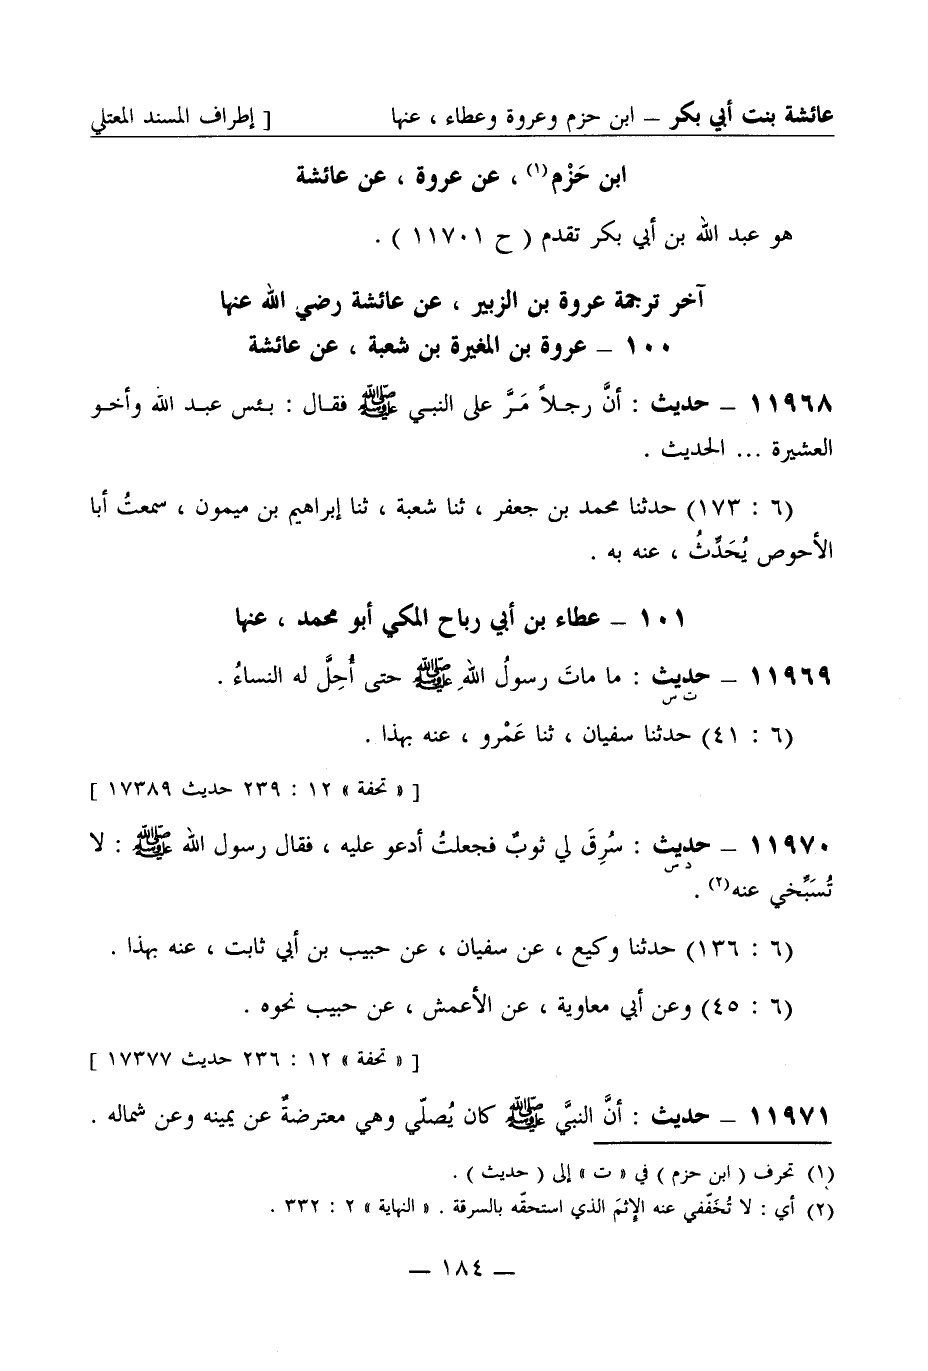 عائشة بنت أبي بكر – ابن حزم وعروة وعطاء ، عنها [ إطراف المسند المعتلي
ابن حَزْم(١) ، عن عروة ، عن عائشة
هو عبد الله بن أبي بكر تقدم ( ح ١١٧٠١ ) .
آخر ترجمة عروة بن الزبير ، عن عائشة رضي الله عنها
١٠٠ – عروة بن المغيرة بن شعبة ، عن عائشة
١١٩٦٨ – حديث : أنَّ رجلاً مَرَّ على النبي ﷺ فقال : بئس عبد الله وأخو
العشيرة ... الحديث .
(٦ : ١٧٣) حدثنا محمد بن جعفر ، ثنا شعبة ، ثنا إبراهيم بن ميمون ، سمعتُ أبا
الأحوص يُحَدِّثُ ، عنه به .
١٠١ – عطاء بن أبي رباح المكي أبو محمد ، عنها
١١٩٦٩ – حديث : ما ماتَ رسولُ اللهِ ﷺ حتى أُحِلَّ له النساءُ .
ت س
(٦ : ٤١) حدثنا سفيان ، ثنا عَمْرو ، عنه بهذا .
[ « تحفة » ١٢ : ٢٣٩ حديث ١٧٣٨٩ ]
١١٩٧٠ – حديث : سُرِقَ لي ثوبٌ فجعلتُ أدعو عليه ، فقال رسول الله ﷺ : لا
د س
تُسَبِّخي عنه(٢) .
(٦ : ١٣٦) حدثنا وكيع ، عن سفيان ، عن حبيب بن أبي ثابت ، عنه بهذا .
(٦ : ٤٥) وعن أبي معاوية ، عن الأعمش ، عن حبيب نحوه .
[ « تحفة » ١٢ : ٢٣٦ حديث ١٧٣٧٧ ]
١١٩٧١ – حديث : أنَّ النبيَّ ﷺ كان يُصلّي وهي معترضةٌ عن يمينه وعن شماله .
(١) تحرف ( ابن حزم ) في « ت » إلى ( حديث ) .
(٢) أي : لا تُخَفّفي عنه الإثمَ الذي استحقّه بالسرقة . « النهاية » ٢ : ٣٣٢ .
– ١٨٤ –